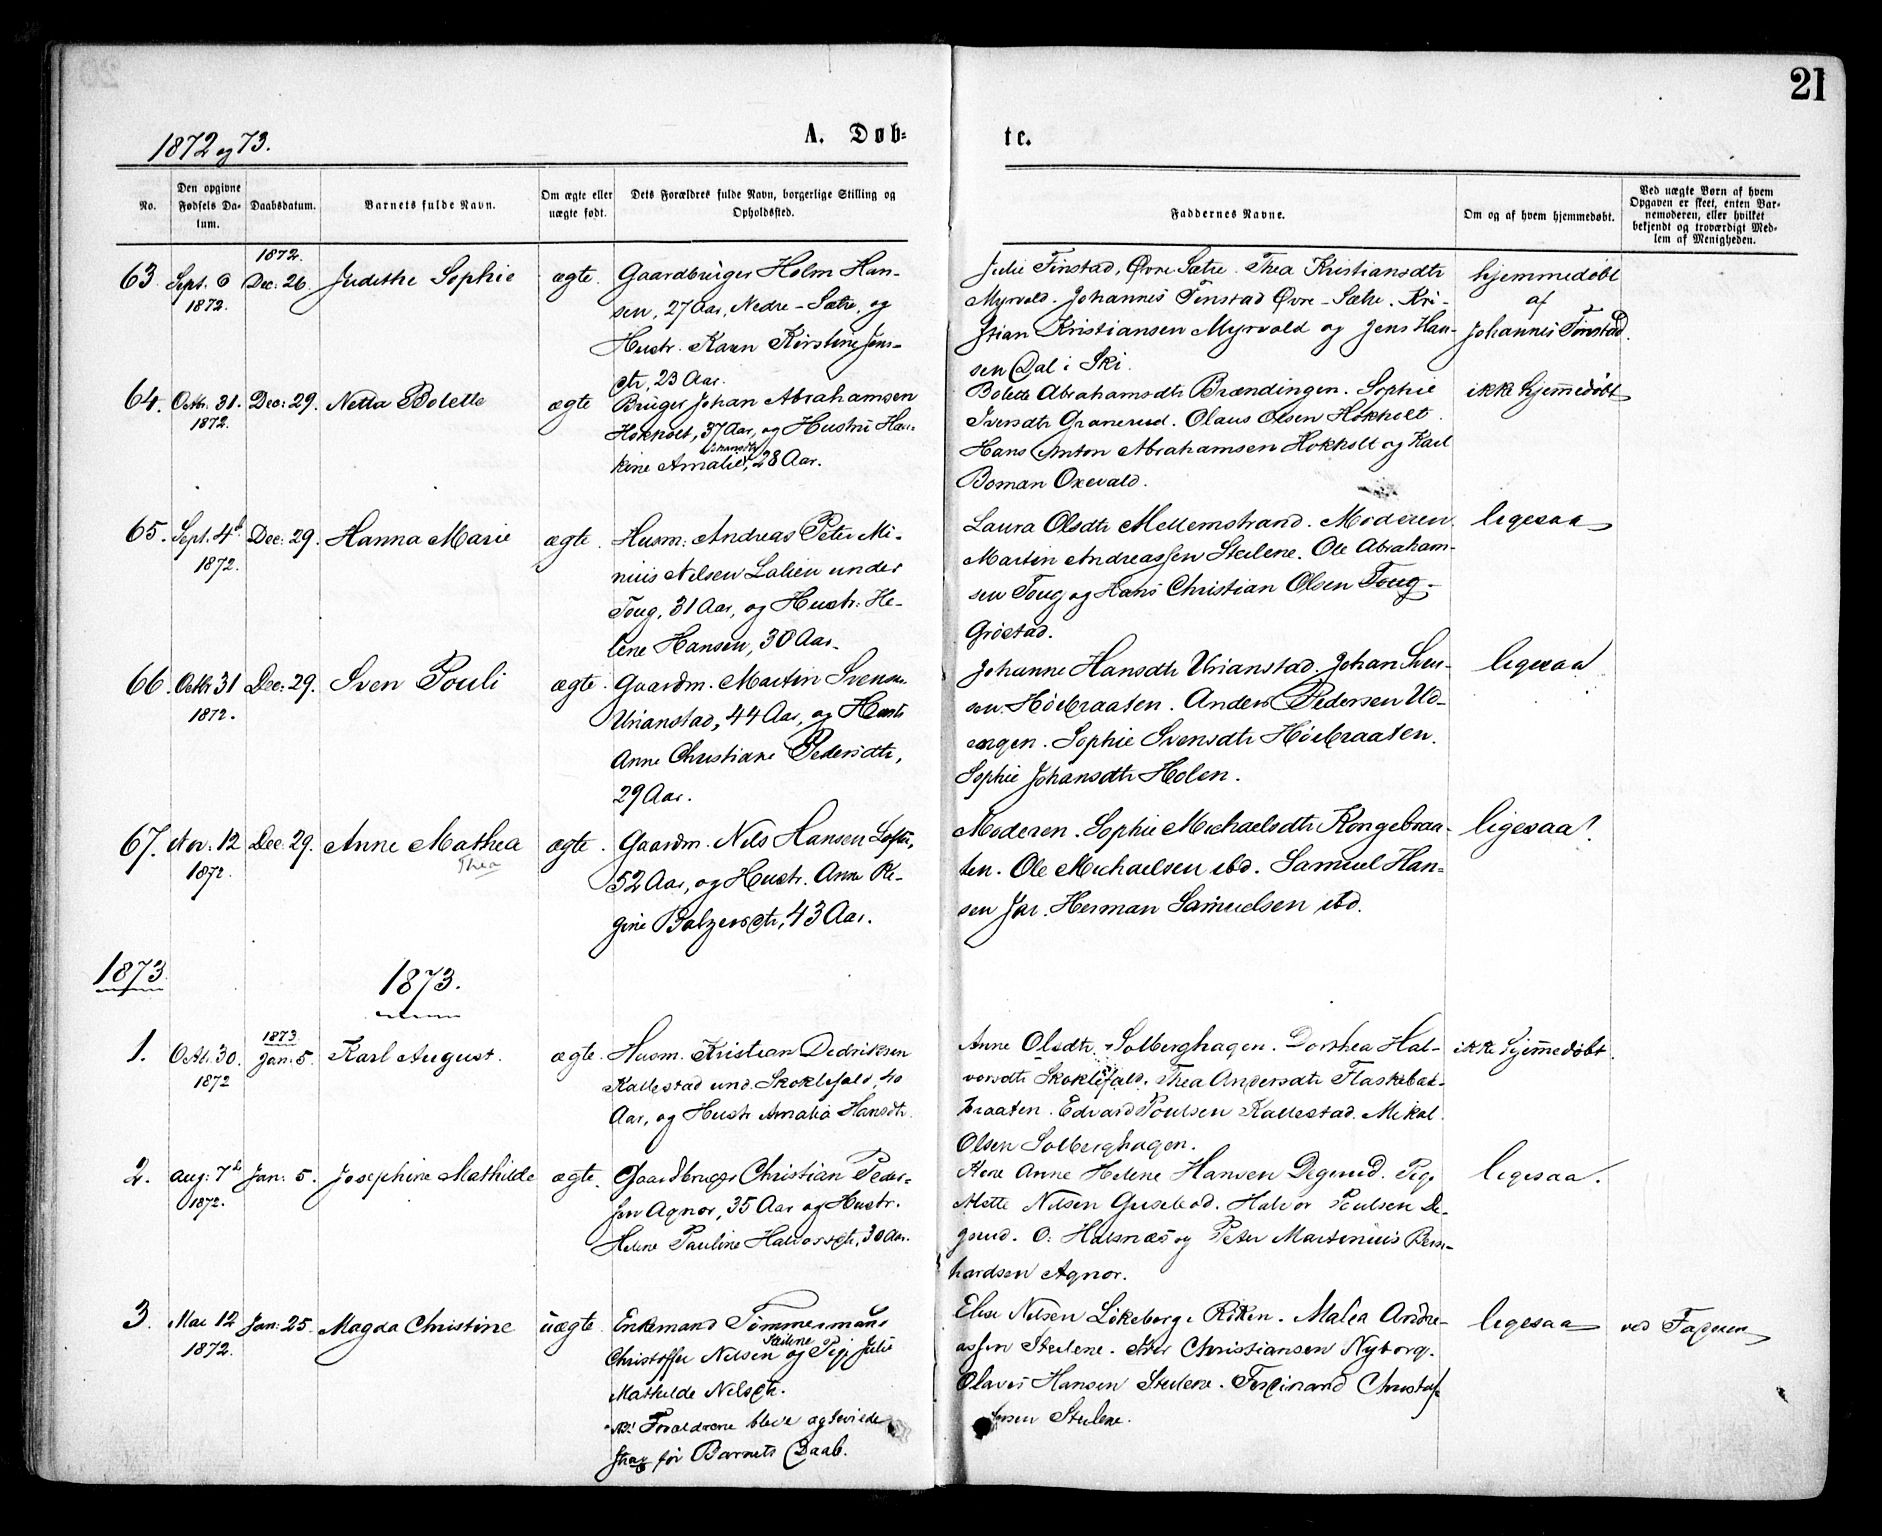 21
1872 og 73.
A. Døb-
te.
No.
Den opgivne Fødsels Da-
tum.
Daabsdatum.
Barnets fulde Navn.
Om ægte eller
uægte født.
Dets Forældres fulde Navn, borgerlige Stilling og
Opholdssted.
Faddernes Navne.
Om og af hvem hjemmedøbt.
Ved uægte Børn af hvem
Opgaven er skeet, enten Bar-
nemoderen, eller hvilket
bekjendt og troværdigt Med-
lem af Menigheden.
1872.
63. Sept. 6 Dec: 26. Judithe Sophie ægte. Gaardbruger Holm Han-
1872.
sen, 27 Aar, Nedre-Sætre, og
Hustr. Karen Kirstine Jens-
dtr, 23 Aar.
Julie Finstad, Øvre Sætre. Thea Kristiansdtr
Myrvold. Johannes Finstad Øvre-Sætre. Kri-
stian Kristiansen Myrvold og Jens Han-
sen Dal i Ski.
hjemmedøbt
af
Johannes Finstad.
64. Octbr. 31. Dec: 29. Netta Bolette ægte Bruger Johan Abrahamsen
1872.
Hokholt, 37 Aar, og Hustru Han-
Johansdtr
kine Amalie, 28 Aar.
Bolette Abrahamsdtr Brændingen. Sophie
Iversdtr Granerud. Olaus Olsen Hokholt.
Hans Anton Abrahamsen Hokholt og Karl
Boman Oxevald.
ikke hjemmedøbt
65. Sept. 4de Dec: 29. Hanna Marie ægte. Husm: Andreas Peter Mi-
1872.
nius Nilsen Løkien under
Toug, 31 Aar, og Hustr: He-
lene Hansen, 30 Aar.
Laura Olsdtr Mellemstrand. Moderen.
Martin Andreassen Steilene. Ole Abraham-
sen Toug og Hans Christian Olsen Toug-
Grøstad.
ligesaa
66. Octbr 31 Dec: 29. Sven Pouli ægte. Gaardm. Martin Svensen
1872.
Urianstad, 44 Aar, og Hustr
Anne Christiane Pedersdtr,
29 Aar.
Johanne Hansdtr Urianstad. Johan Sven-
sen Høibraaten. Anders Pedersen Ud-
engen. Sophie Svensdtr Høibraaten.
Sophie Johansdtr Holen.
ligesaa
67. Nov. 12 Dec. 29. Anne Mathea ægte. Gaardm. Nils Hansen Lofter,
1872.
Thea
52 Aar, og Hustr. Anne Re-
gine Balzersdtr, 43 Aar.
Moderen. Sophie Michaelsdtr Kongebraa-
ten. Ole Michaelsen ibd. Samuel Han-
sen Jar. Herman Samuelsen ibd.
ligesaa.
1873
1873.
1. Octb. 30. 1873 Jan: 5. Karl August. ægte. Husm. Kristian Dedriksen
1872
Kallestad und. Skoklefald, 40
Aar, og Hustr Amalia Hansdtr.
Anne Olsdtr. Solberghagen. Dorthea Hal-
vorsdtr Skoklefald. Thea Andersdtr Flaskebæk-
braaten. Edvard Poulsen Kallestad. Mikal
Olsen Solberghagen.
ikke hjemmedøbt.
2. Aug: 7de Jan: 5. Josephine Mathilde ægte. Gaardbruger Christian Peder-
1872.
sen Agnor, 35 Aar og Hustr.
Helene Pauline Halvorsdtr, 30 Aar.
Kone Anne Helene Hansen Degrud. Pige
Mette Nilsen Gusebod. Halvor Poulsen De-
grud. O. Halsnæs og Peter Martinius Bern-
hardsen Agnor.
ligesaa.
3. Mai 12 Jan: 25. Magda Christine uægte Enkemand Tømmermand
1872.
Steilene
Christoffer Nilsen og Pige Julie
Mathilde Nilsdtr.
NB! Forældrene bleve ægteviede
strax før Barnets Daab.
Elise Nilsen Løkeberg i Røken. Malea Andre-
assen Steilene. Iver Christiansen Nyborg.
Olaves Hansen Steilene. Ferdinand Christof-
fersen Steilene.
ligesaa
ved Faderen